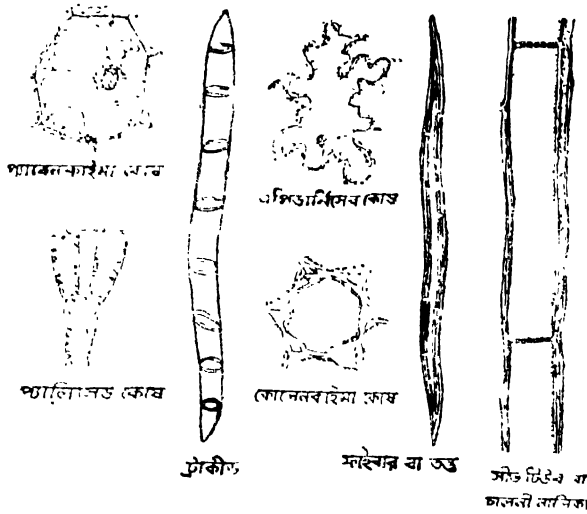 প্যারেনকাইমা কোষ
এপিডার্মিসের কোষ
প্যালিসেড কোষ
কোলেনকাইমা কোষ
ট্রাকীড
ফাইবার বা তন্তু
সীভ টিউব বা
চালনী নালিকা